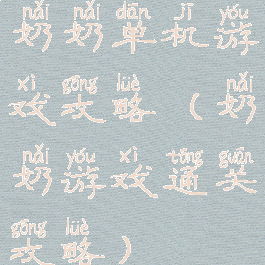 nǎi nǎi dān jī yóu
奶奶单机游
xì gōng lüè nǎi
戏攻略（奶
nǎi yóu xì tōng guān
奶游戏通关
gōng lüè
攻略）